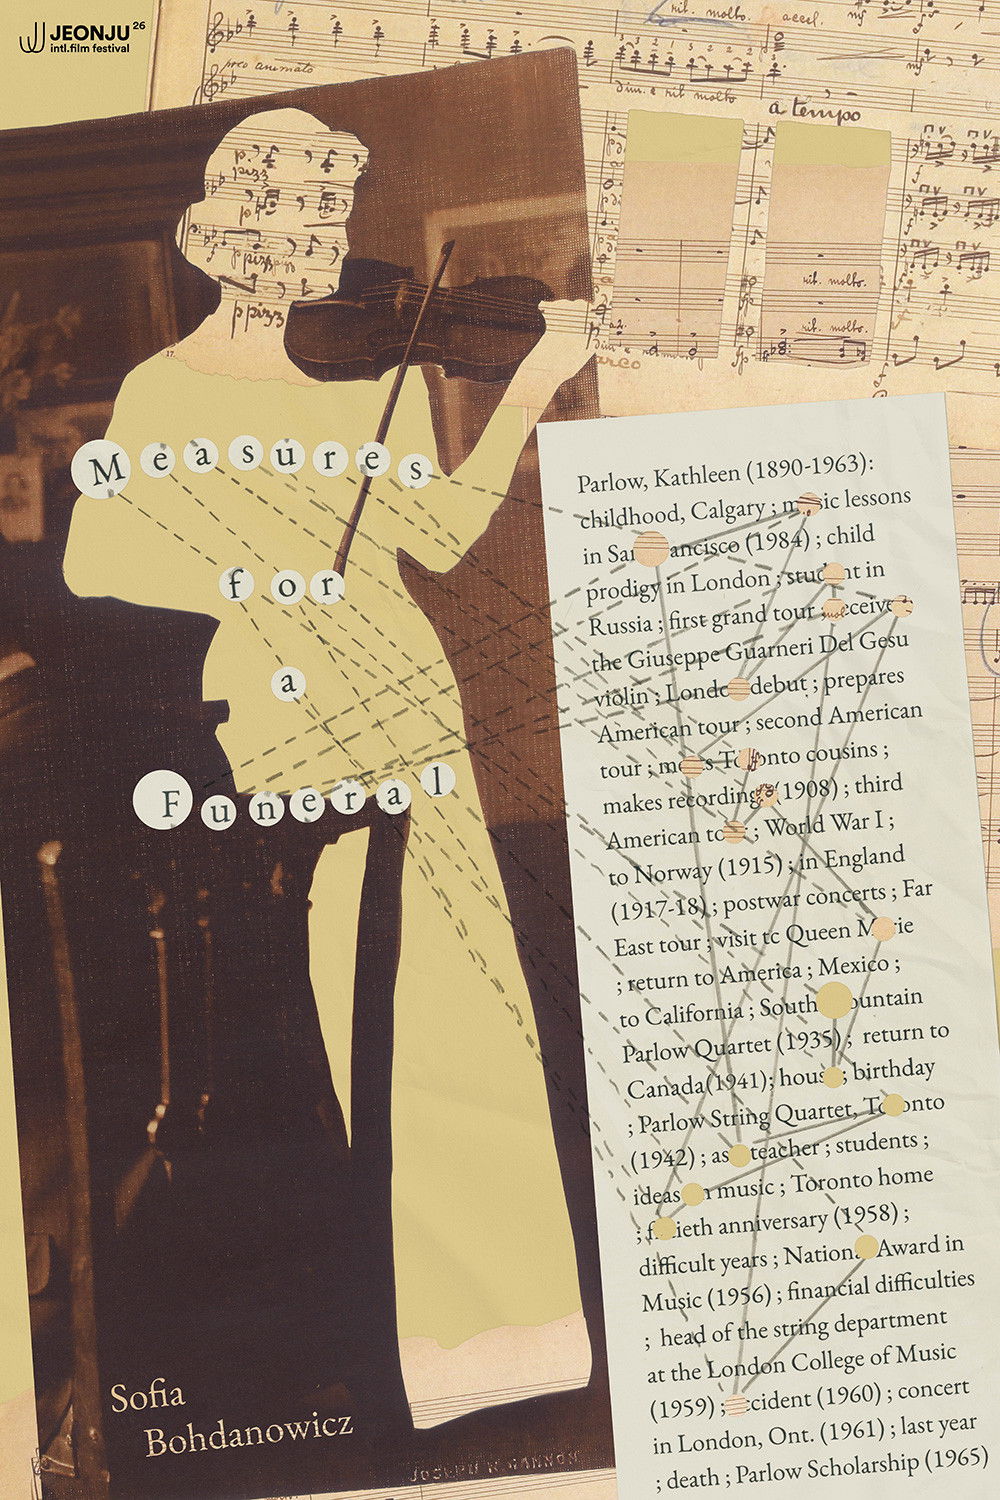 JEONJU 26
intl.film festival
rit. molto. accel. mf
poco animato
dim. e rit molto
a tempo
p. pizz
p
ppizz
ppizz
rit. molto.
rit. molto.
arco
17.
Measures
for
a
Funeral
Parlow, Kathleen (1890-1963):
childhood, Calgary ; m sic lessons
in Sa ancisco (1984) ; child
prodigy in London ; stud nt in
Russia ; first grand tour ; eceive
the Giuseppe Guarneri Del Gesu
violin ; Londo debut ; prepares
American tour ; second American
tour ; m es To onto cousins ;
makes recording (1908) ; third
American to ; World War I ;
to Norway (1915) ; in England
(1917-18) ; postwar concerts ; Far
East tour ; visit tc Queen M rie
; return to America ; Mexico ;
to California ; South ountain
Parlow Quartet (1935) ; return to
Canada(1941); hous ; birthday
; Parlow String Quartet, To onto
(1942) ; as teacher ; students ;
ideas n music ; Toronto home
; f ieth anniversary (1958) ;
difficult years ; Nationa Award in
Music (1956) ; financial difficulties
; head of the string department
at the London College of Music
(1959) ; ccident (1960) ; concert
in London, Ont. (1961) ; last year
; death ; Parlow Scholarship (1965)
Sofia
Bohdanowicz
JOSEPH N GANNON